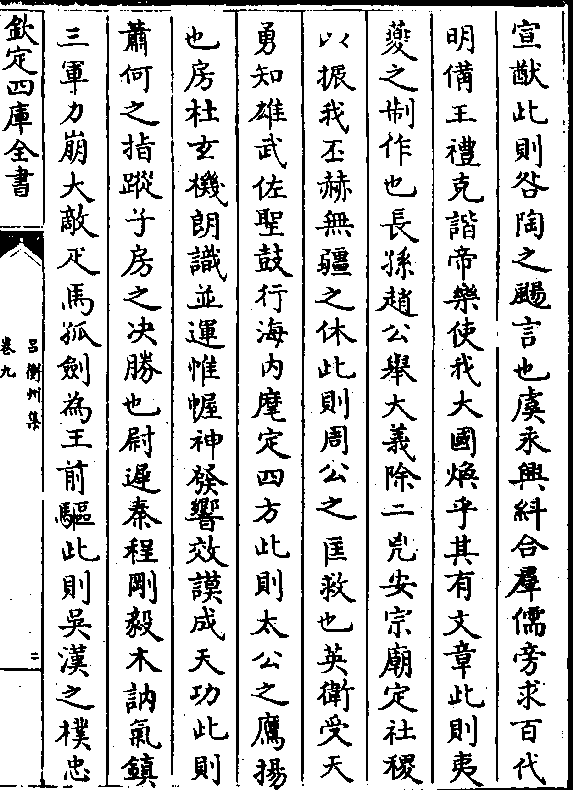 宣猷此則咎陶之颺言也虞永興糾合羣儒旁求百代
明備王禮克諧帝樂使我大國煥乎其有文章此則夷
夔之制作也長孫趙公舉大義除二兇安宗廟定社稷
以振我丕赫無疆之休此則周公之匡救也英衛受天
勇知雄武佐聖鼓行海内麾定四方此則太公之鷹揚
也房杜玄機朗識並運惟幄神發響效謨成天功此則
蕭何之指蹤子房之决勝也尉遲秦程剛毅木訥氣鎮
三軍力崩大敵疋馬孤劍為王前驅此則吳漢之樸忠
欽定四庫全書
吕衡州集
卷九
二